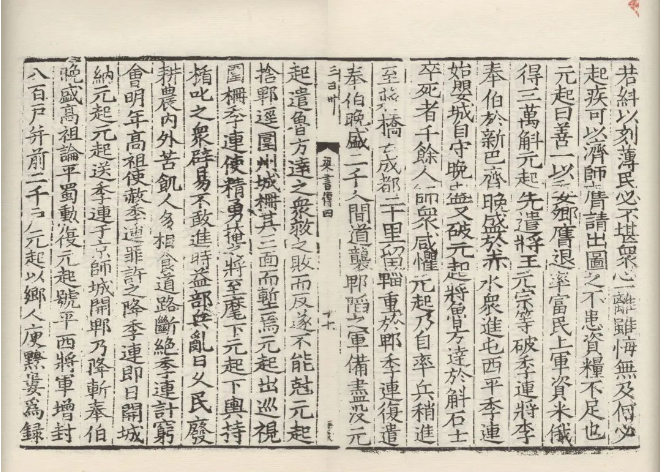 若糾以刻薄民必不堪衆心一離雖悔無及何必
起疾可以濟師膺請出圖之不患資糧不足也
元起曰善一以委卿膺退率富民上軍資米俄
得三萬斛元起先遣將王元宗等破季連將李
奉伯於新巴齊晚盛於赤水衆進屯西平季連
始嬰城自守晚盛又破元起將魯方達於斛石士
卒死者千餘人師衆咸懼元起乃自率兵稍進
至蔣橋去成都二十里留輜重於郫季連復遣
奉伯晚盛二千人間道襲郫陷之軍備盡没元
梁書傳四
十七
起遣魯方達之衆救之敗而反遂不能尅元起
捨郫逕圍州城柵其三面而塹焉元起出巡視
圍柵季連使精勇掩之將至麾下元起下輿持
楯叱之衆辟易不敢進時益部兵亂日久民廢
耕農内外苦飢人多相食道路斷絶季連計窮
會明年高祖使赦季連罪許之降季連即日開城
納元起元起送季連于京師城開郫乃降斬奉伯
晚盛高祖論平蜀勳復元起號平西將軍增封
八百戸并前二千戸元起以鄉人庾黔婁爲録